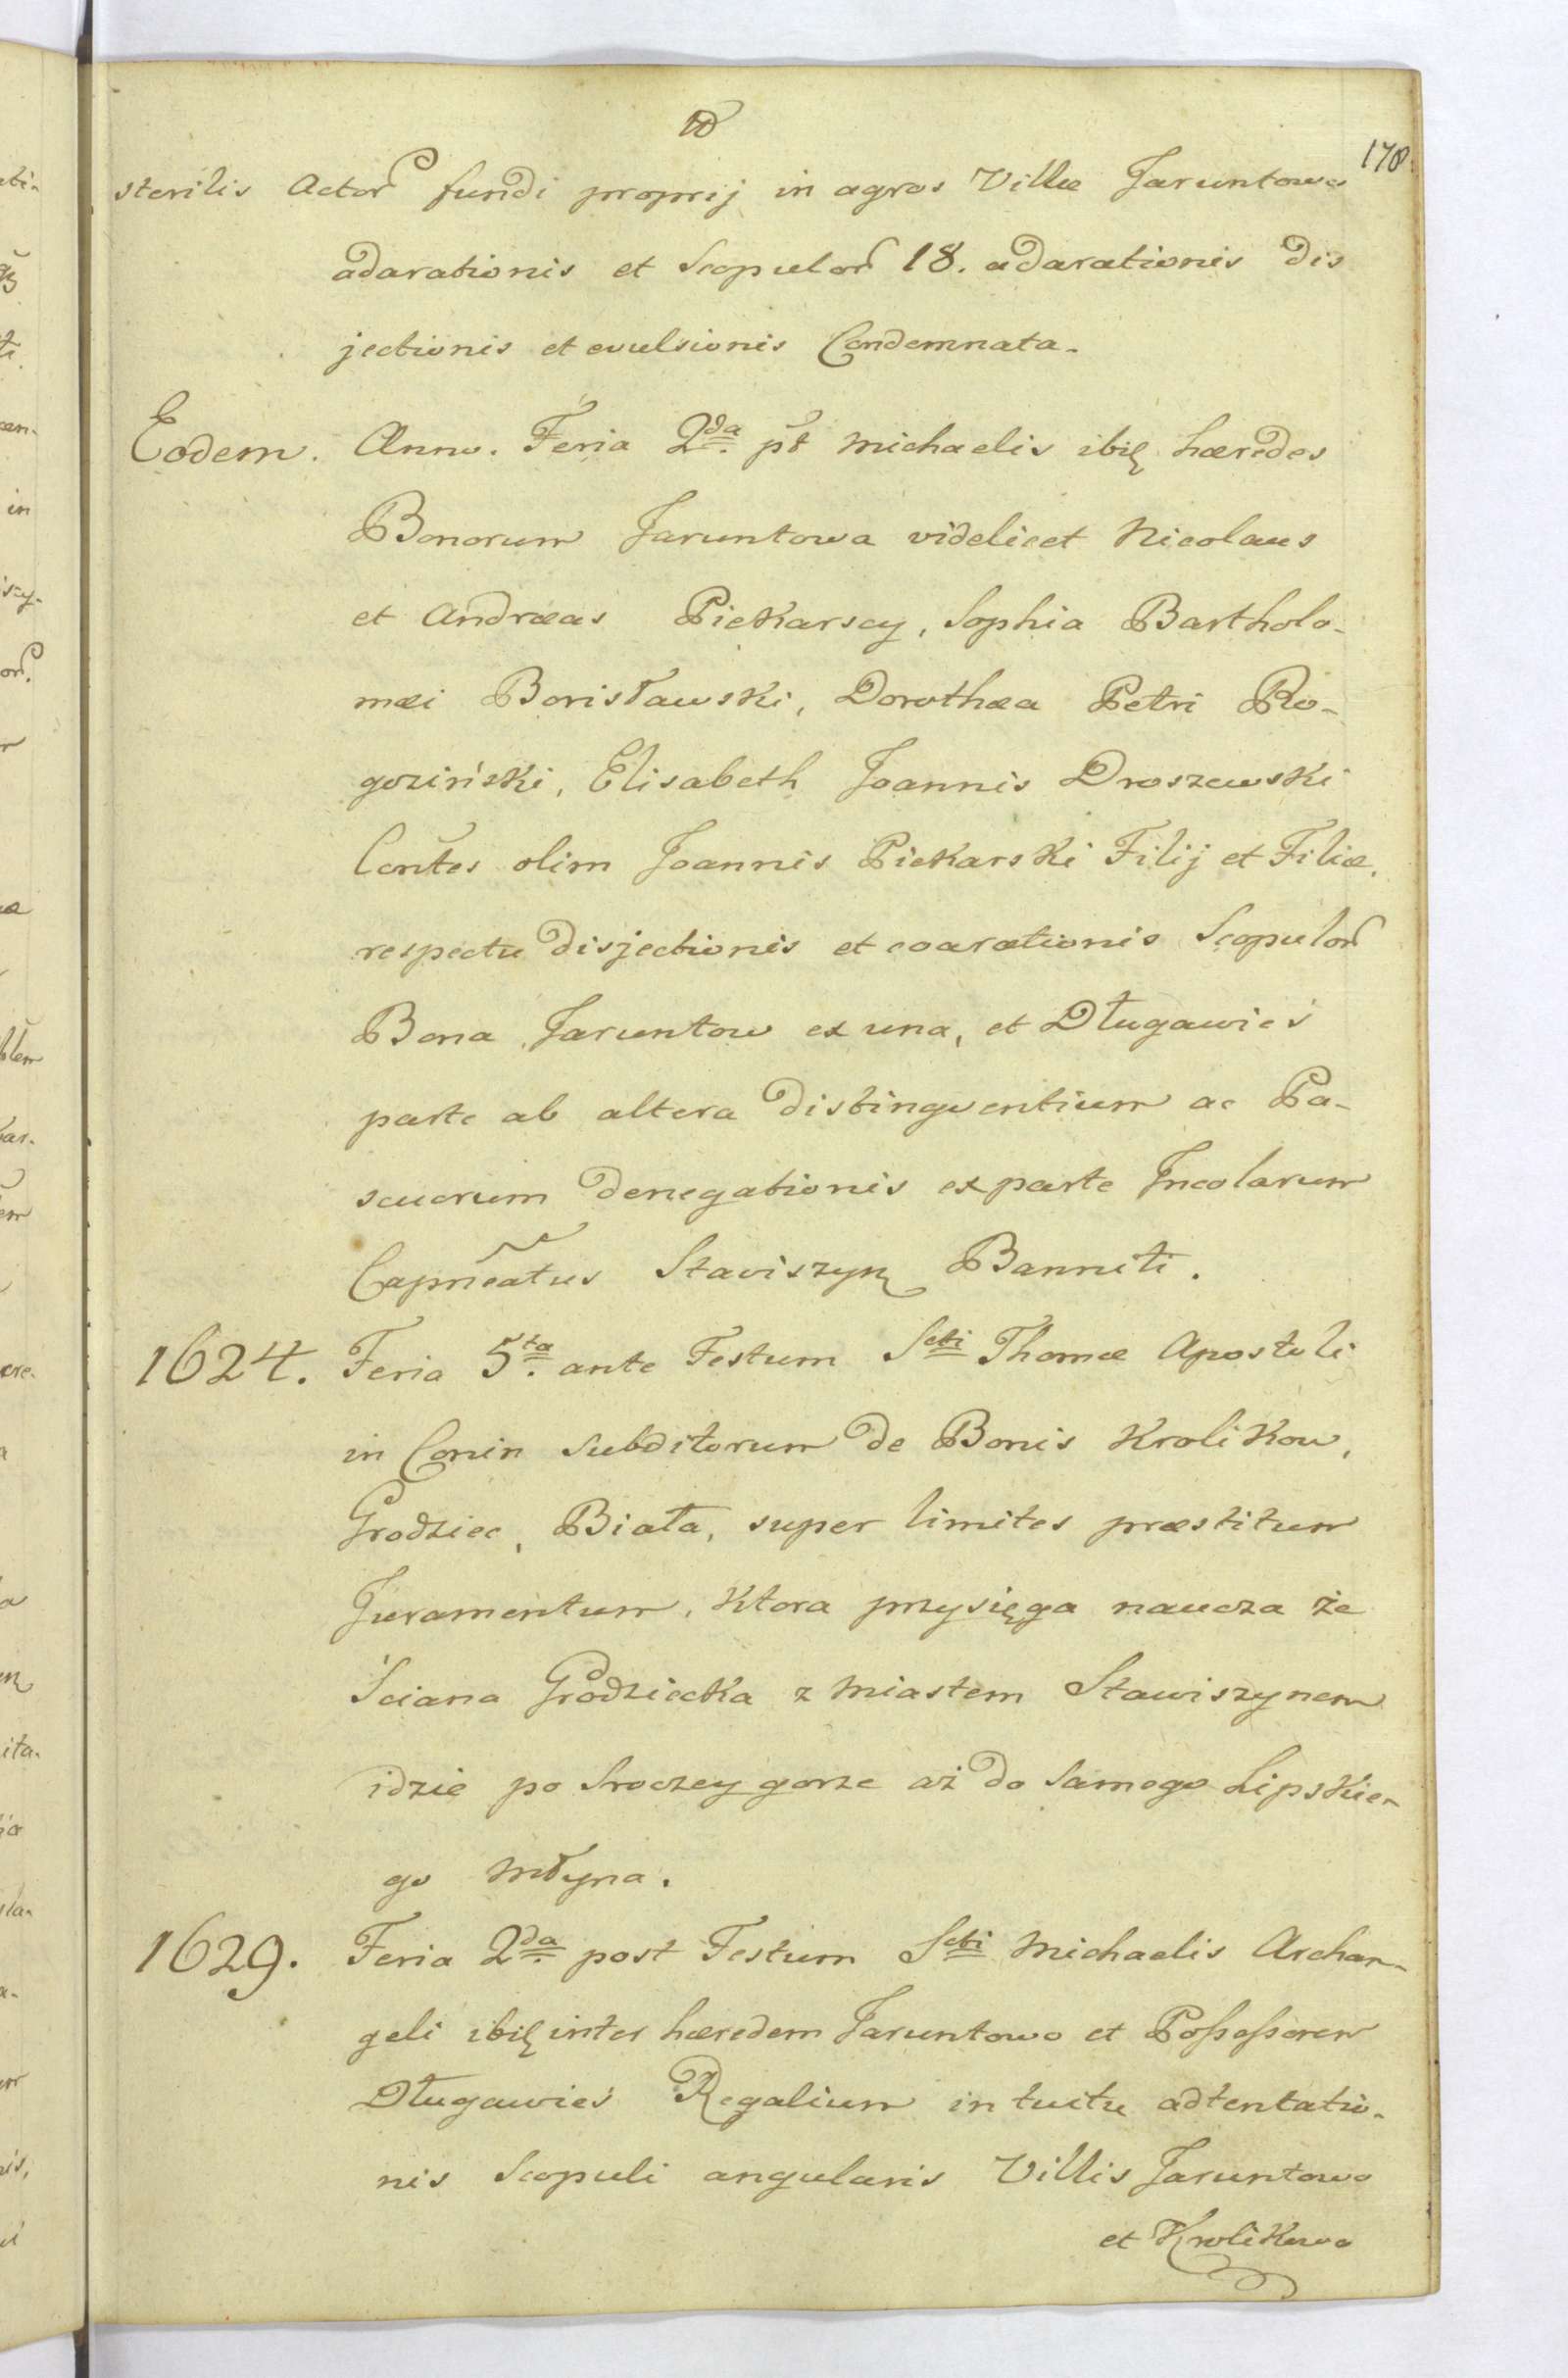 10
178
sterilis Actor fundi proprij in agros Villæ Jaruntowo
adarationis et Scopulor 18. adarationis dis
jectionis et evulsionis Condemnata.
Eodem. Anno. Feria 2da pt Michaelis ibid hæredes
Bonorum Jaruntowa videlicet Nicolaus
et Andræas Piekarscy, Sophia Bartholo-
mæi Borisławski, Dorothæa Petri Ro-
goziński, Elisabeth Joannis Droszewski
Contes olim Joannis Piekarski Filij et Filiæ,
respectu disjectionis et coarationis Scopulor
Bona Jaruntow ex una, et Długawieś
parte ab altera distingventium ac Pa-
scuorum denegationis ex parte Incolarum
Capneatus Stawiszyn Banniti.
1624. Feria 5ta ante Festum Scti Thomæ Apostoli
in Conin Subditorum de Bonis Krolikow,
Grodziec, Biała, super limites præstitum
Juramentum, Ktora przysięga naucza że
Sciana Grodziecka z Miastem Stawiszynem
idzie po Sroczey gorze aż do Samego Lipskie-
go Młyna.
1629. Feria 2da post Festum Scti Michaelis Archan-
geli ibid inter hæredem Jaruntowo et Poſseſsorem
Długawieś Regalium intuitu adtentatio-
nis Scopuli angularis Villis Jaruntowo
et Krolikowo